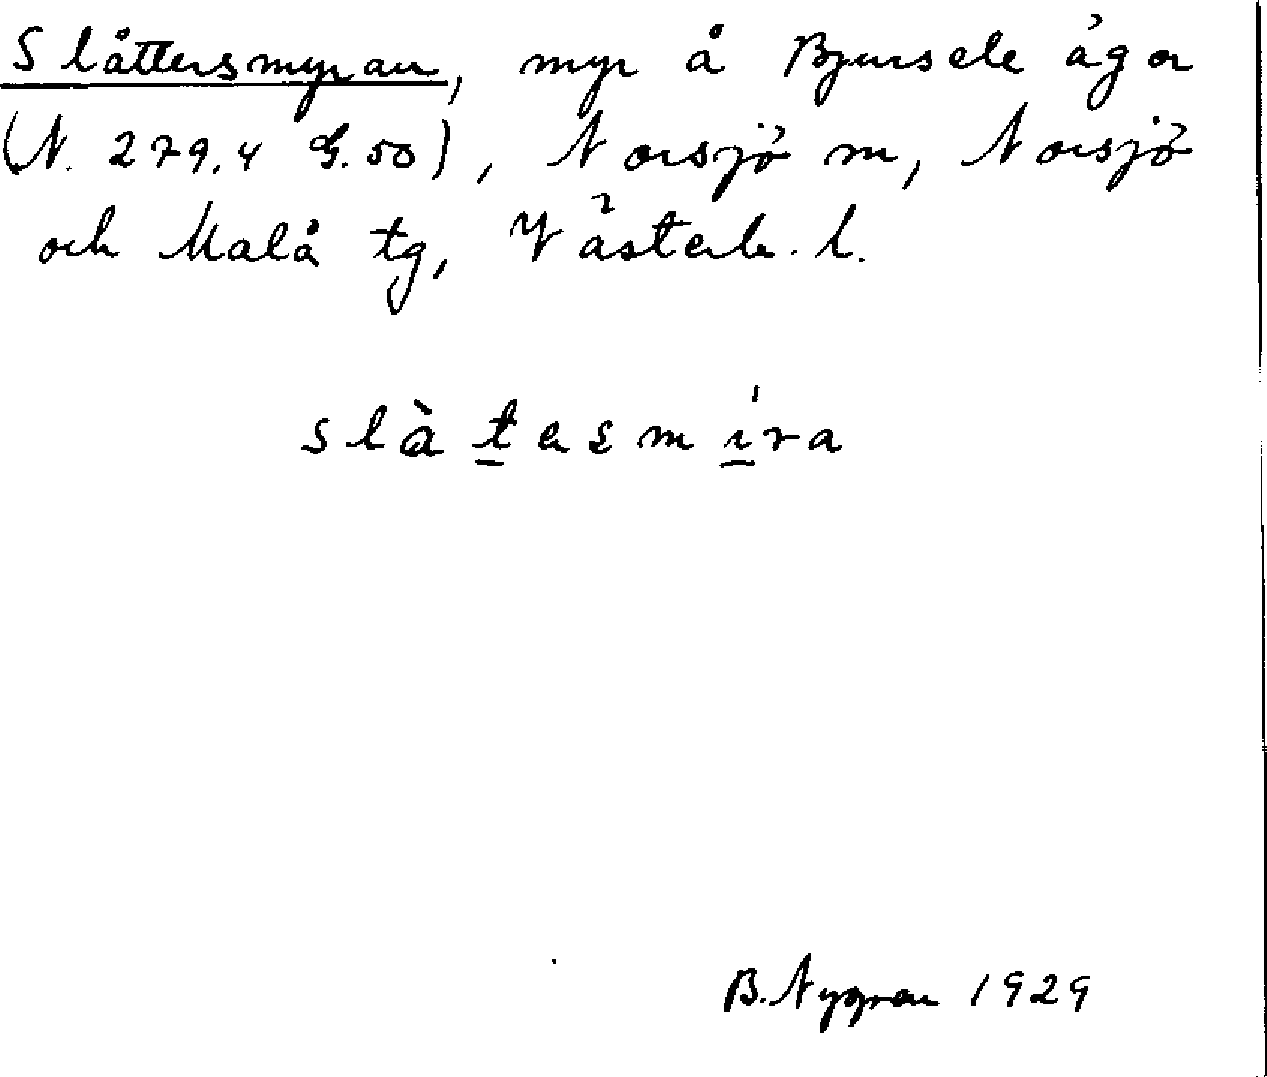 Slåttersmyran, myr å Bjursele ägor
(N. 279,4 G.50), Norsjö m, Norsjö
och Malå tg, Västerb. l.
slàtesmíra
B. Nygren 1929